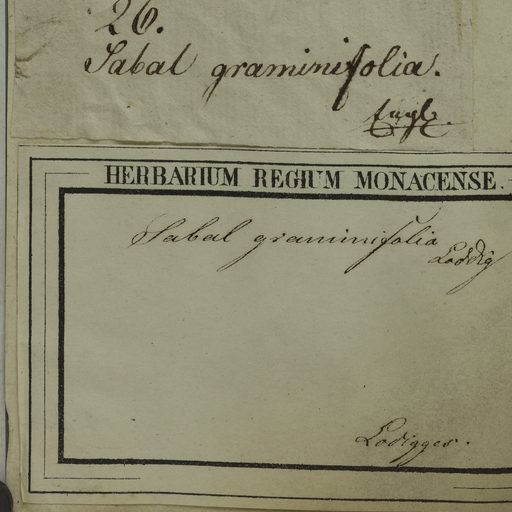 26.
Sabal graminifolia.
Engl.
HERBARIUM REGIUM MONACENSE.
Sabal graminifolia
Loddig
Lodigges.